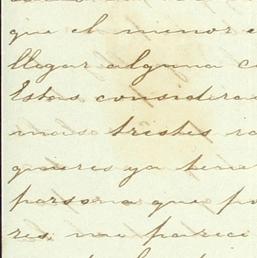 que el menor
llegar alguna
Estas considera
mas tristes
quieres ya tene
persona que po
res, me pareci